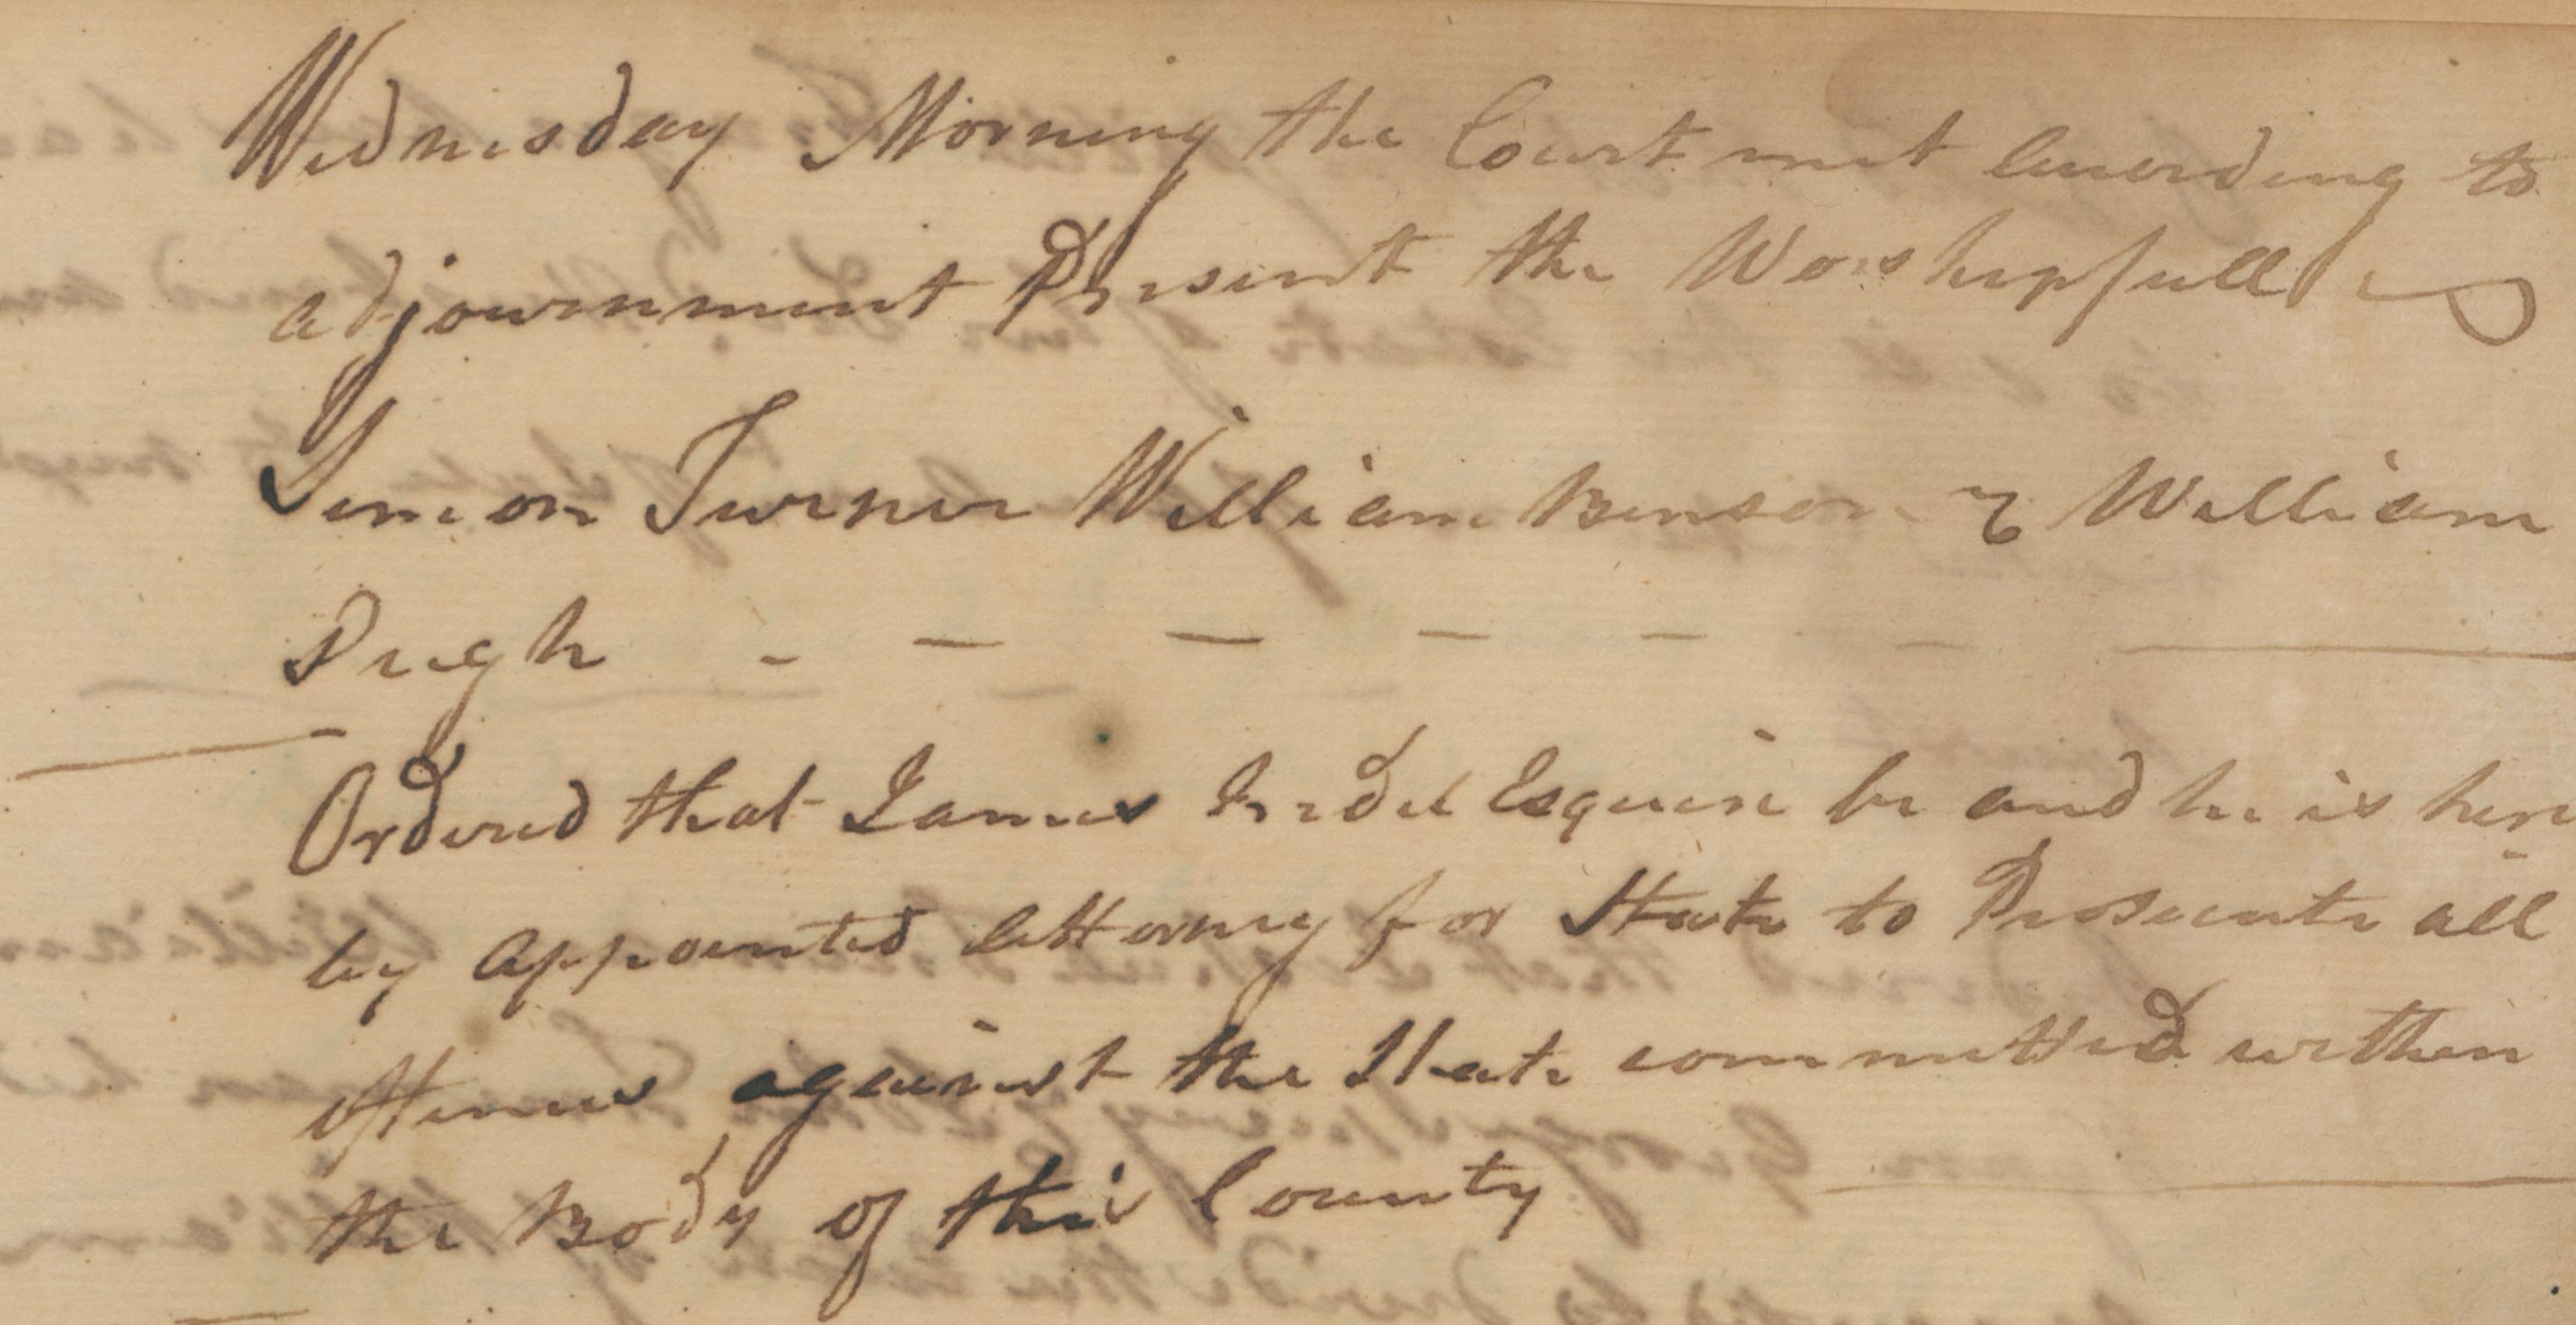 Wednesday Morning the Court met according to
adjournment Present the Worshipfull
Simon Turner William Benson & William
Pugh - - - - - -
Ordered that James Iredel Esquire be and he is here
by appointed Attorney for State to Prosecute all
offences against the State committed within
the Body of this County